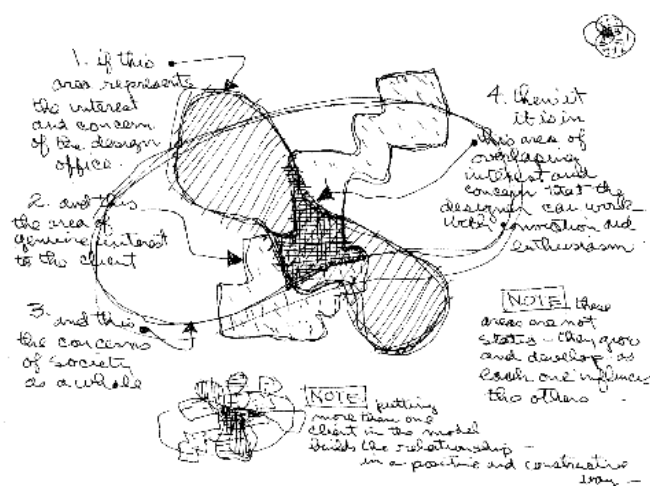 1. if this
area represents
the interest
and concern
of the design
office.
2. and this
the area of
genuine interest
to the client
3. and this
the concerns
of society
as a whole
4. then it
it is in
this area of
overlaping
interest and
concern that the
designer can work
with conviction and
enthusiasm
NOTE these
areas are not
static – they grow
and develop as
each one influences
the others
NOTE putting
more than one
client in the model
builds the relationship –
in a positive and constructive
way –